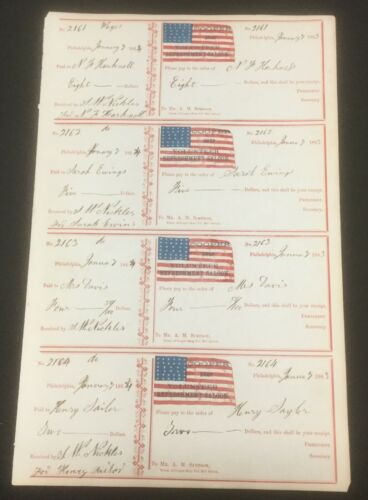 No. 2161 Wages
Philadelphia, January 3 1864
Paid to N. F. Hacknell
Eight Dollars.
Received by S. W. Nickles
For N. F. Hacknell
COOPER
SHOP
VOLUNTEER
REFRESHMENT SALOON.
No. 2161
Philadelphia, January 3 1863
Please pay to the order of N. F. Hacknell
Eight Dollars, and this shall be your receipt.
President
Secretary.
To Mr. A. M. Simpson,
No. 2162 do
Philadelphia, January 3 1864
Paid to Sarah Ewings
Five Dollars.
Received by S. W. Nickles
For Sarah Ewins
COOPER
SHOP
VOLUNTEER
REFRESHMENT SALOON.
No. 2162
Philadelphia, January 3 1863
Please pay to the order of Sarah Ewings
Five Dollars, and this shall be your receipt.
President
Secretary.
To Mr. A. M. Simpson,
No. 2163 do
Philadelphia, January 3 1864
Paid to Mrs Davis
Four Dollars.
Received by S. W. Nickles
COOPER
SHOP
VOLUNTEER
REFRESHMENT SALOON.
No. 2163
Philadelphia, January 3 1863
Please pay to the order of Mrs Davis
Four Dollars, and this shall be your receipt.
President
Secretary.
To Mr. A. M. Simpson,
No. 2164 do
Philadelphia, January 3 1864
Paid to Henry Sailor
Two Dollars.
Received by S. W. Nickles
For Henry Sailor
COOPER
SHOP
VOLUNTEER
REFRESHMENT SALOON.
No. 2164
Philadelphia, January 3 1863
Please pay to the order of Henry Saylor
Two Dollars, and this shall be your receipt.
President
Secretary.
To Mr. A. M. Simpson,